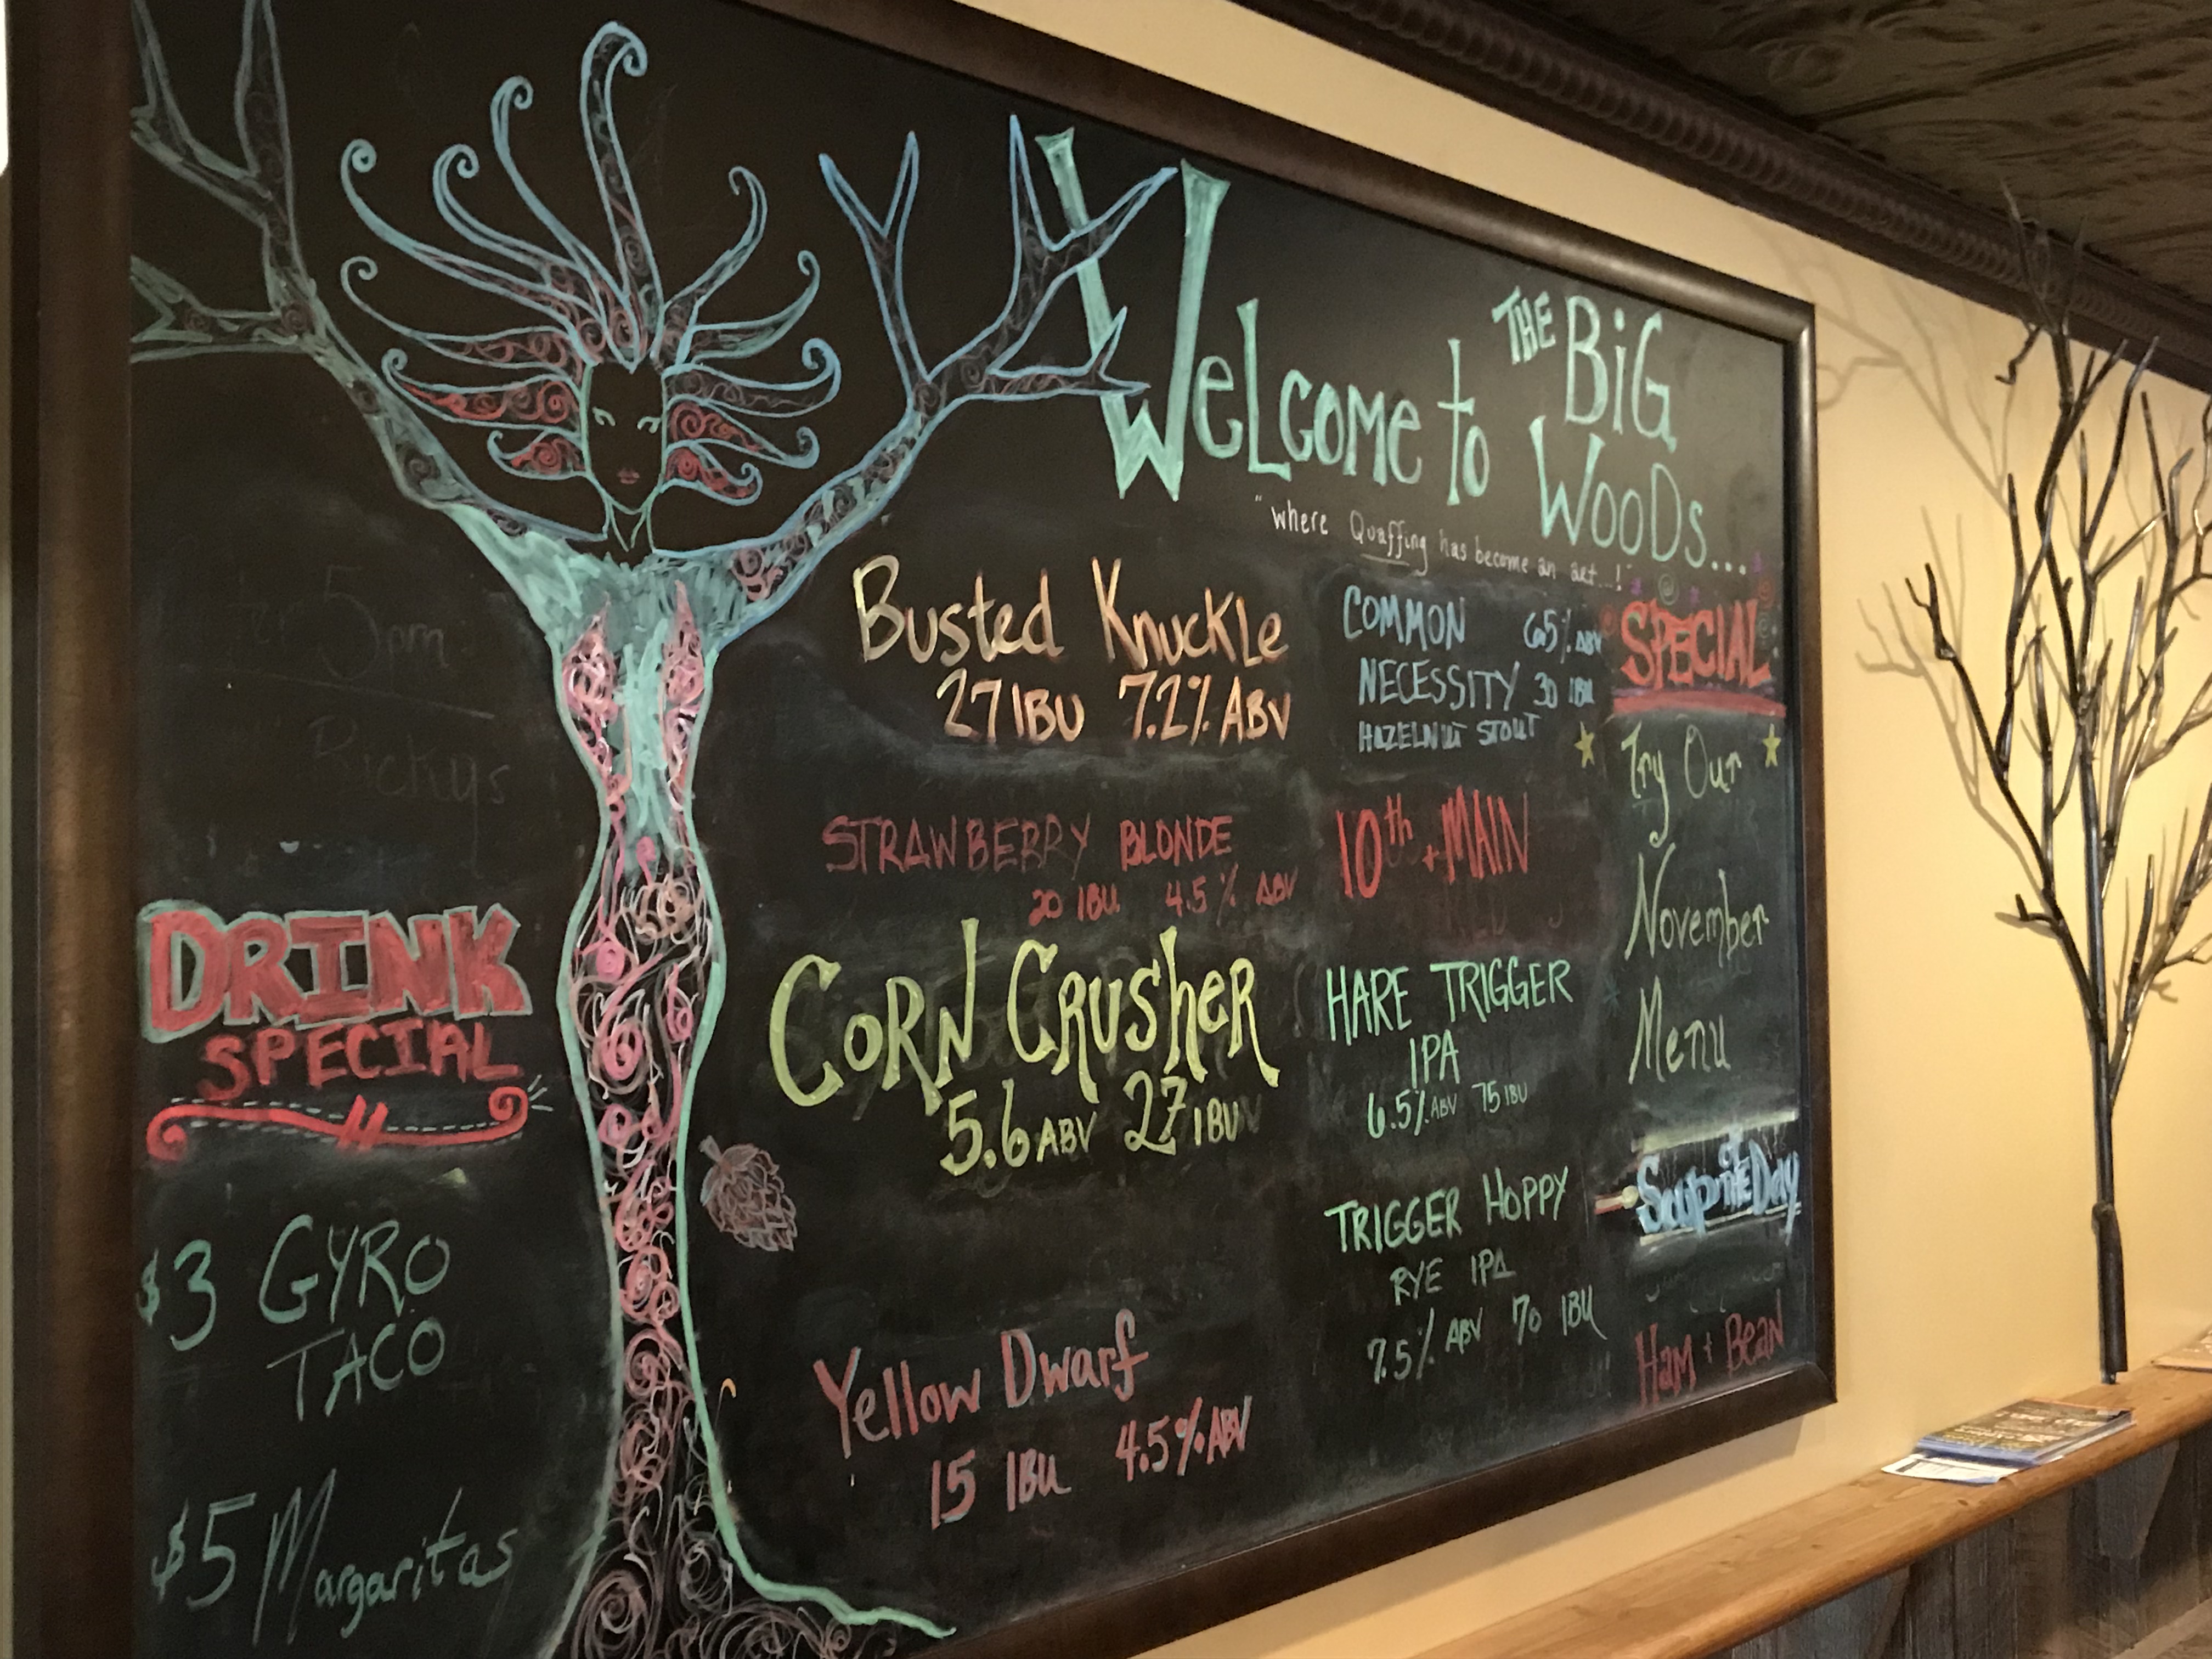 WeLcome to THE BiG
WooDs...
"where Quaffing has become an art...!"
Busted KnuckLe
27 IBU 7.2% ABV
STRAWBERRY BLONDE
20 IBU. 4.5 % ABV
CoRN CRUSheR
5.6 ABV 27 IBU
Yellow Dwarf
15 IBU 4.5% ABV
COMMON 6.5% ABV
NECESSITY 30 IBU
HAZELNUT STOUT
10th + MAIN
HARE TRIGGER
IPA
6.5% ABV 75 IBU
TRIGGER HOPPY
RYE IPA
7.5% ABV 70 IBU
SPECIAL
Try Our
November
Menu
Soup of THE Day
Ham + Bean
5pm
Rickys
DRINK
SPECIAL
$3 GYRO
TACO
$5 Margaritas